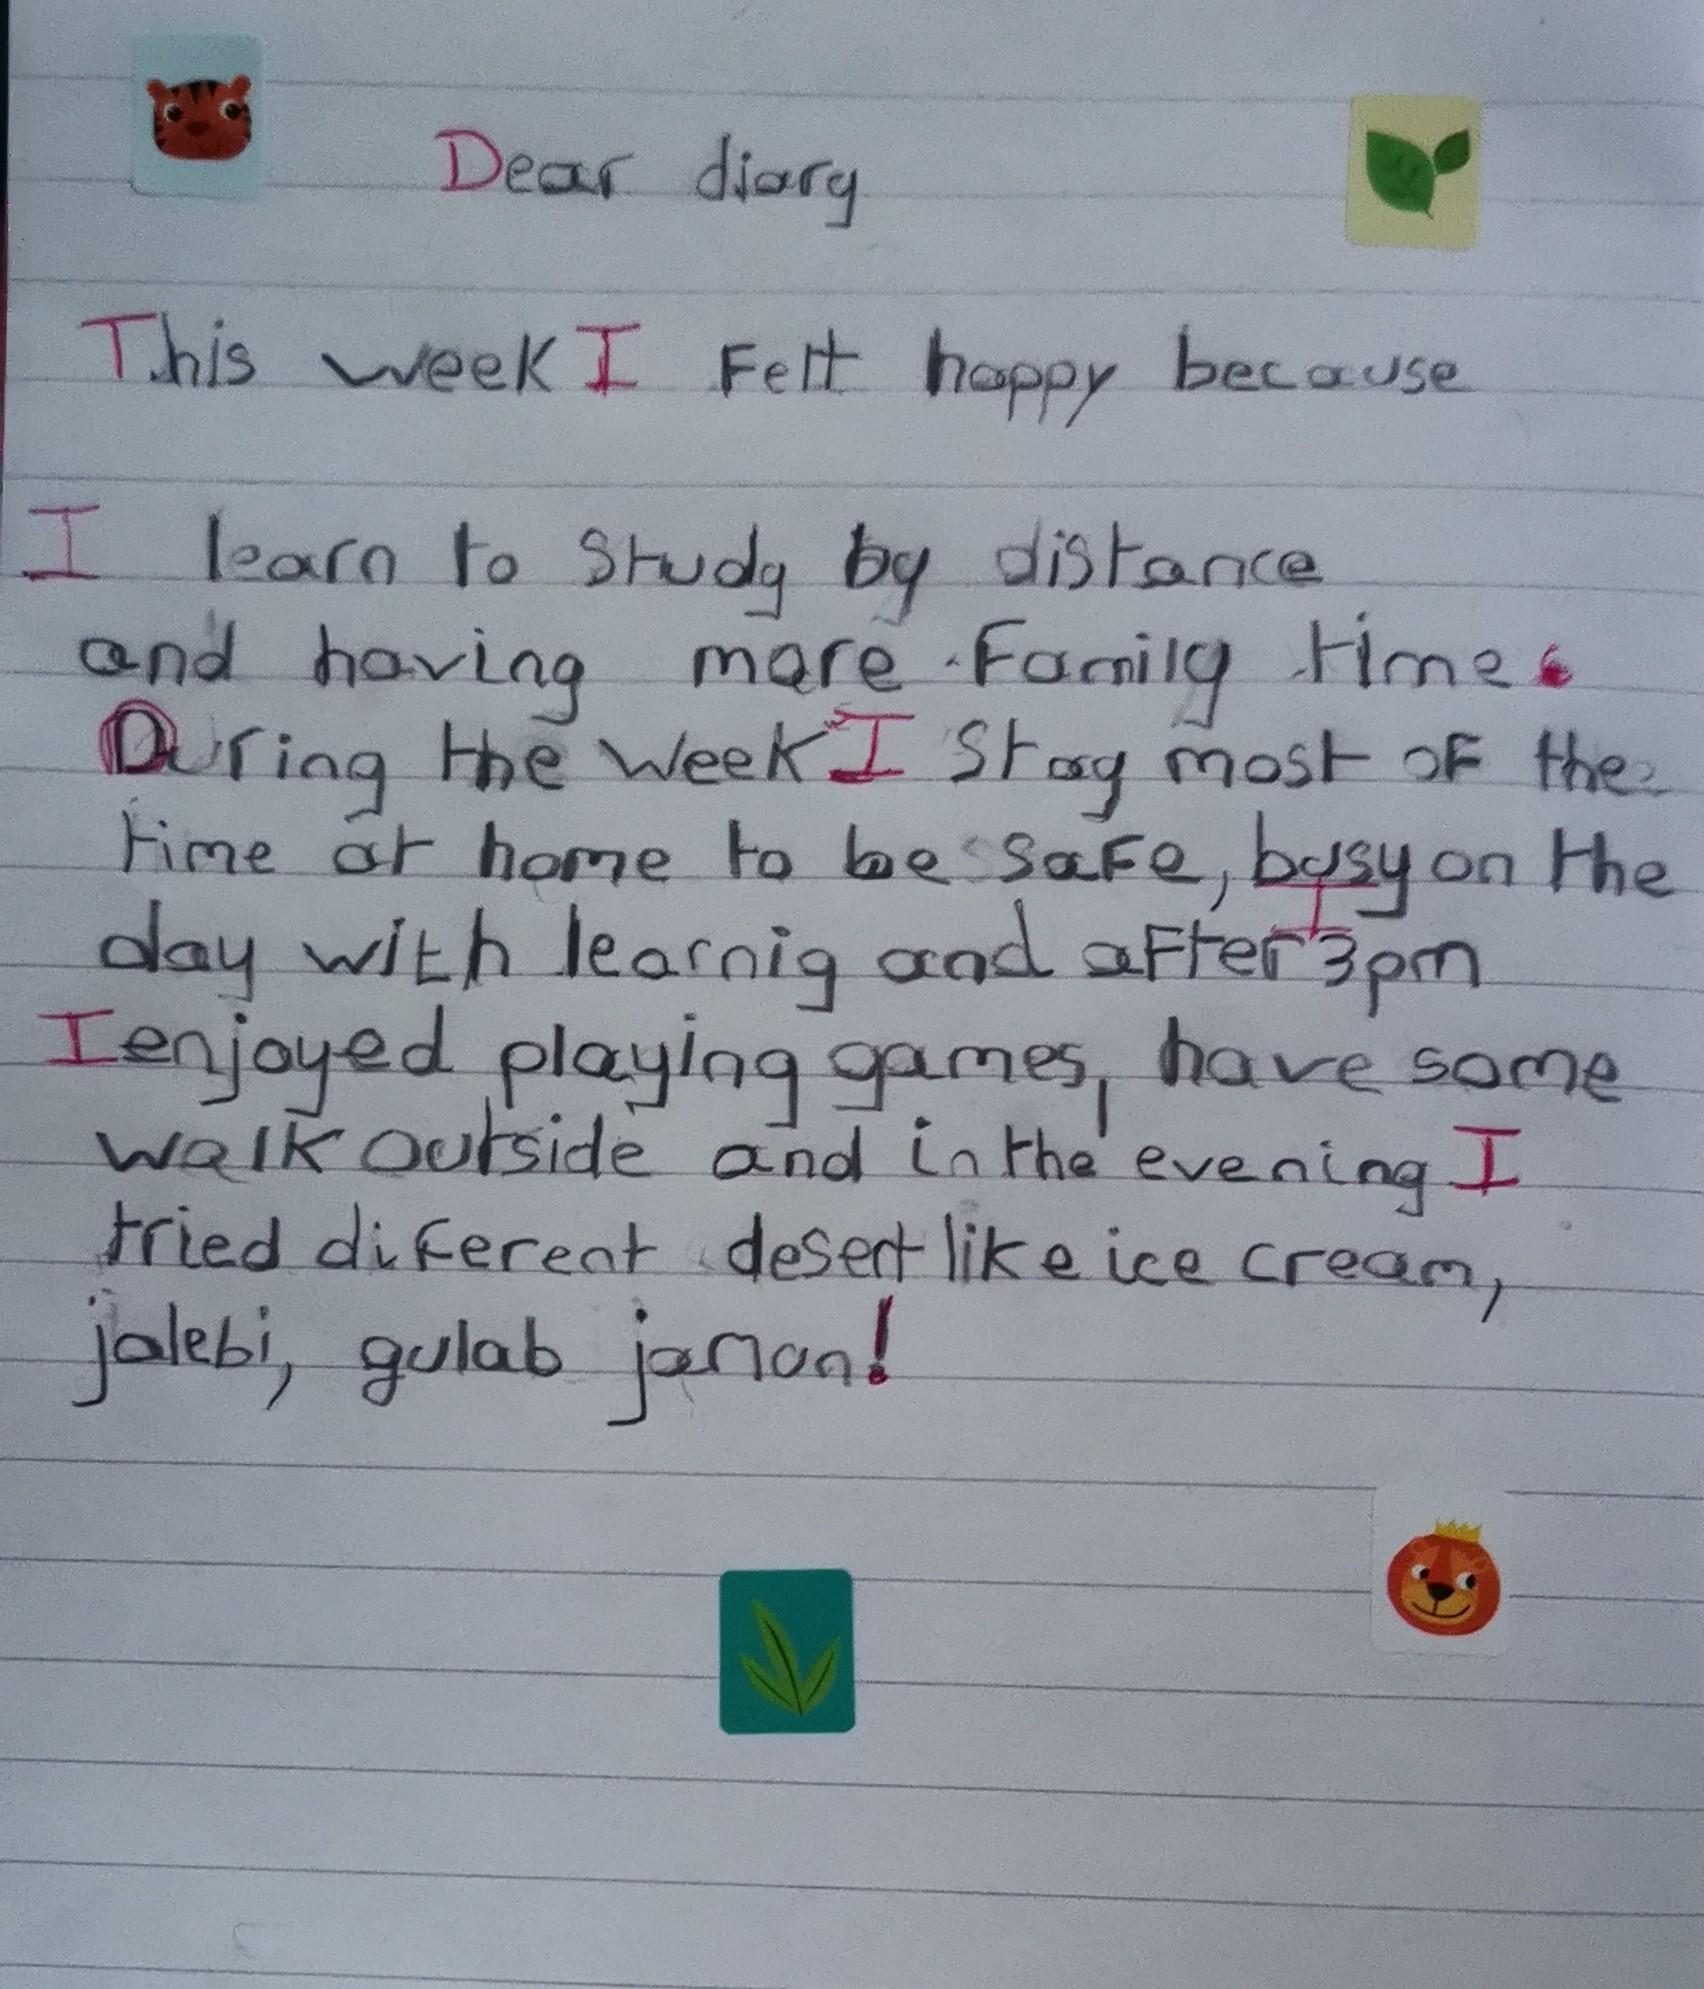 Dear diary
This week I Felt happy because
I learn to study by distance
and having more Family time.
During the week I stay most of the
time at home to be saFe, busy on the
day with learnig and aFter 3pm
I enjoyed playing games, have some
walk outside and in the evening I
tried diFerent desert like ice cream,
jalebi, gulab jamon!